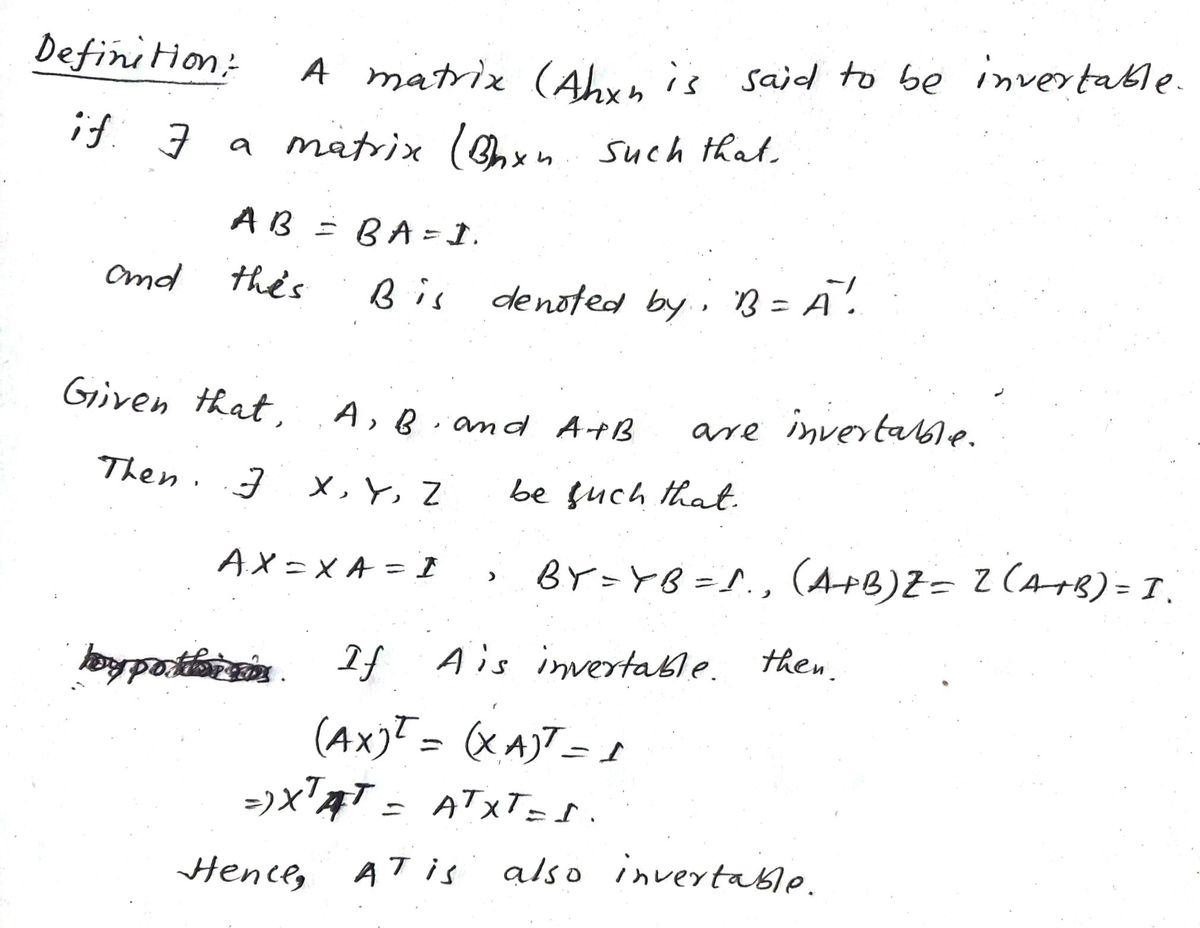 Definition:- A matrix (A)n×n is said to be invertable.
if ∃ a matrix (B)n×n such that.
AB = BA = I.
and this B is denoted by. B = A⁻¹.
Given that, A, B. and A+B are invertable.
Then. ∃ X, Y, Z be such that.
AX = XA = I , BY = YB = I., (A+B)Z = Z(A+B) = I.
If A is invertable. then.
(AX)ᵀ = (XA)ᵀ = I
=> XᵀAᵀ = AᵀXᵀ = I.
Hence, Aᵀ is also invertable.